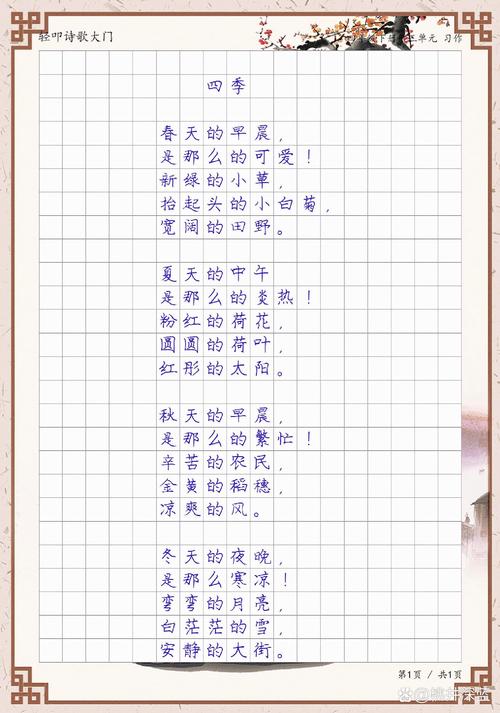 轻叩诗歌大门
单元 习作
四季
春天的早晨，
是那么的可爱！
新绿的小草，
抬起头的小白菊，
宽阔的田野。
夏天的中午
是那么的炎热！
粉红的荷花，
圆圆的荷叶，
红彤的太阳。
秋天的早晨，
是那么的繁忙！
辛苦的农民，
金黄的稻穗，
凉爽的风。
冬天的夜晚，
是那么寒凉！
弯弯的月亮，
白茫茫的雪，
安静的大街。
第1页 / 共1页